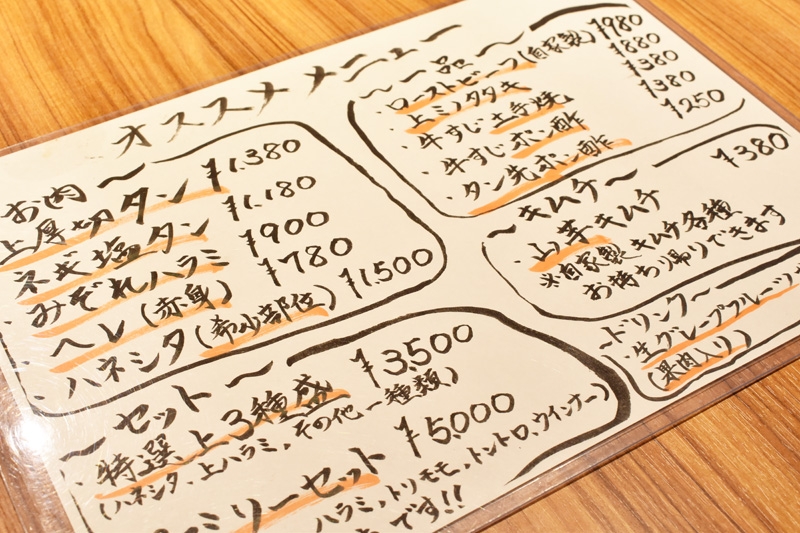 オススメメニュー
お肉〜
・上厚切タン ¥1,380
・ネギ塩タン ¥1,180
・みぞれハラミ ¥900
・ヘレ(赤身) ¥780
・ハネシタ(希少部位) ¥1,500
〜セット〜
・特選上3種盛 ¥3,500
(ハネシタ、上ハラミ、その他一種類)
ミリーセット ¥5,000
ハラミ、トリモモ、トントロ、ウインナー)
です!!
〜一品〜
・ローストビーフ(自家製) ¥980
・上ミノタタキ ¥880
・牛すじ土手焼 ¥380
・牛すじポン酢 ¥380
・タン先ポン酢 ¥250
〜キムチ〜
・山芋キムチ ¥380
※自家製キムチ各種
お持ち帰りできます
〜ドリンク〜
・生グレープフルーツ
(果肉入り)